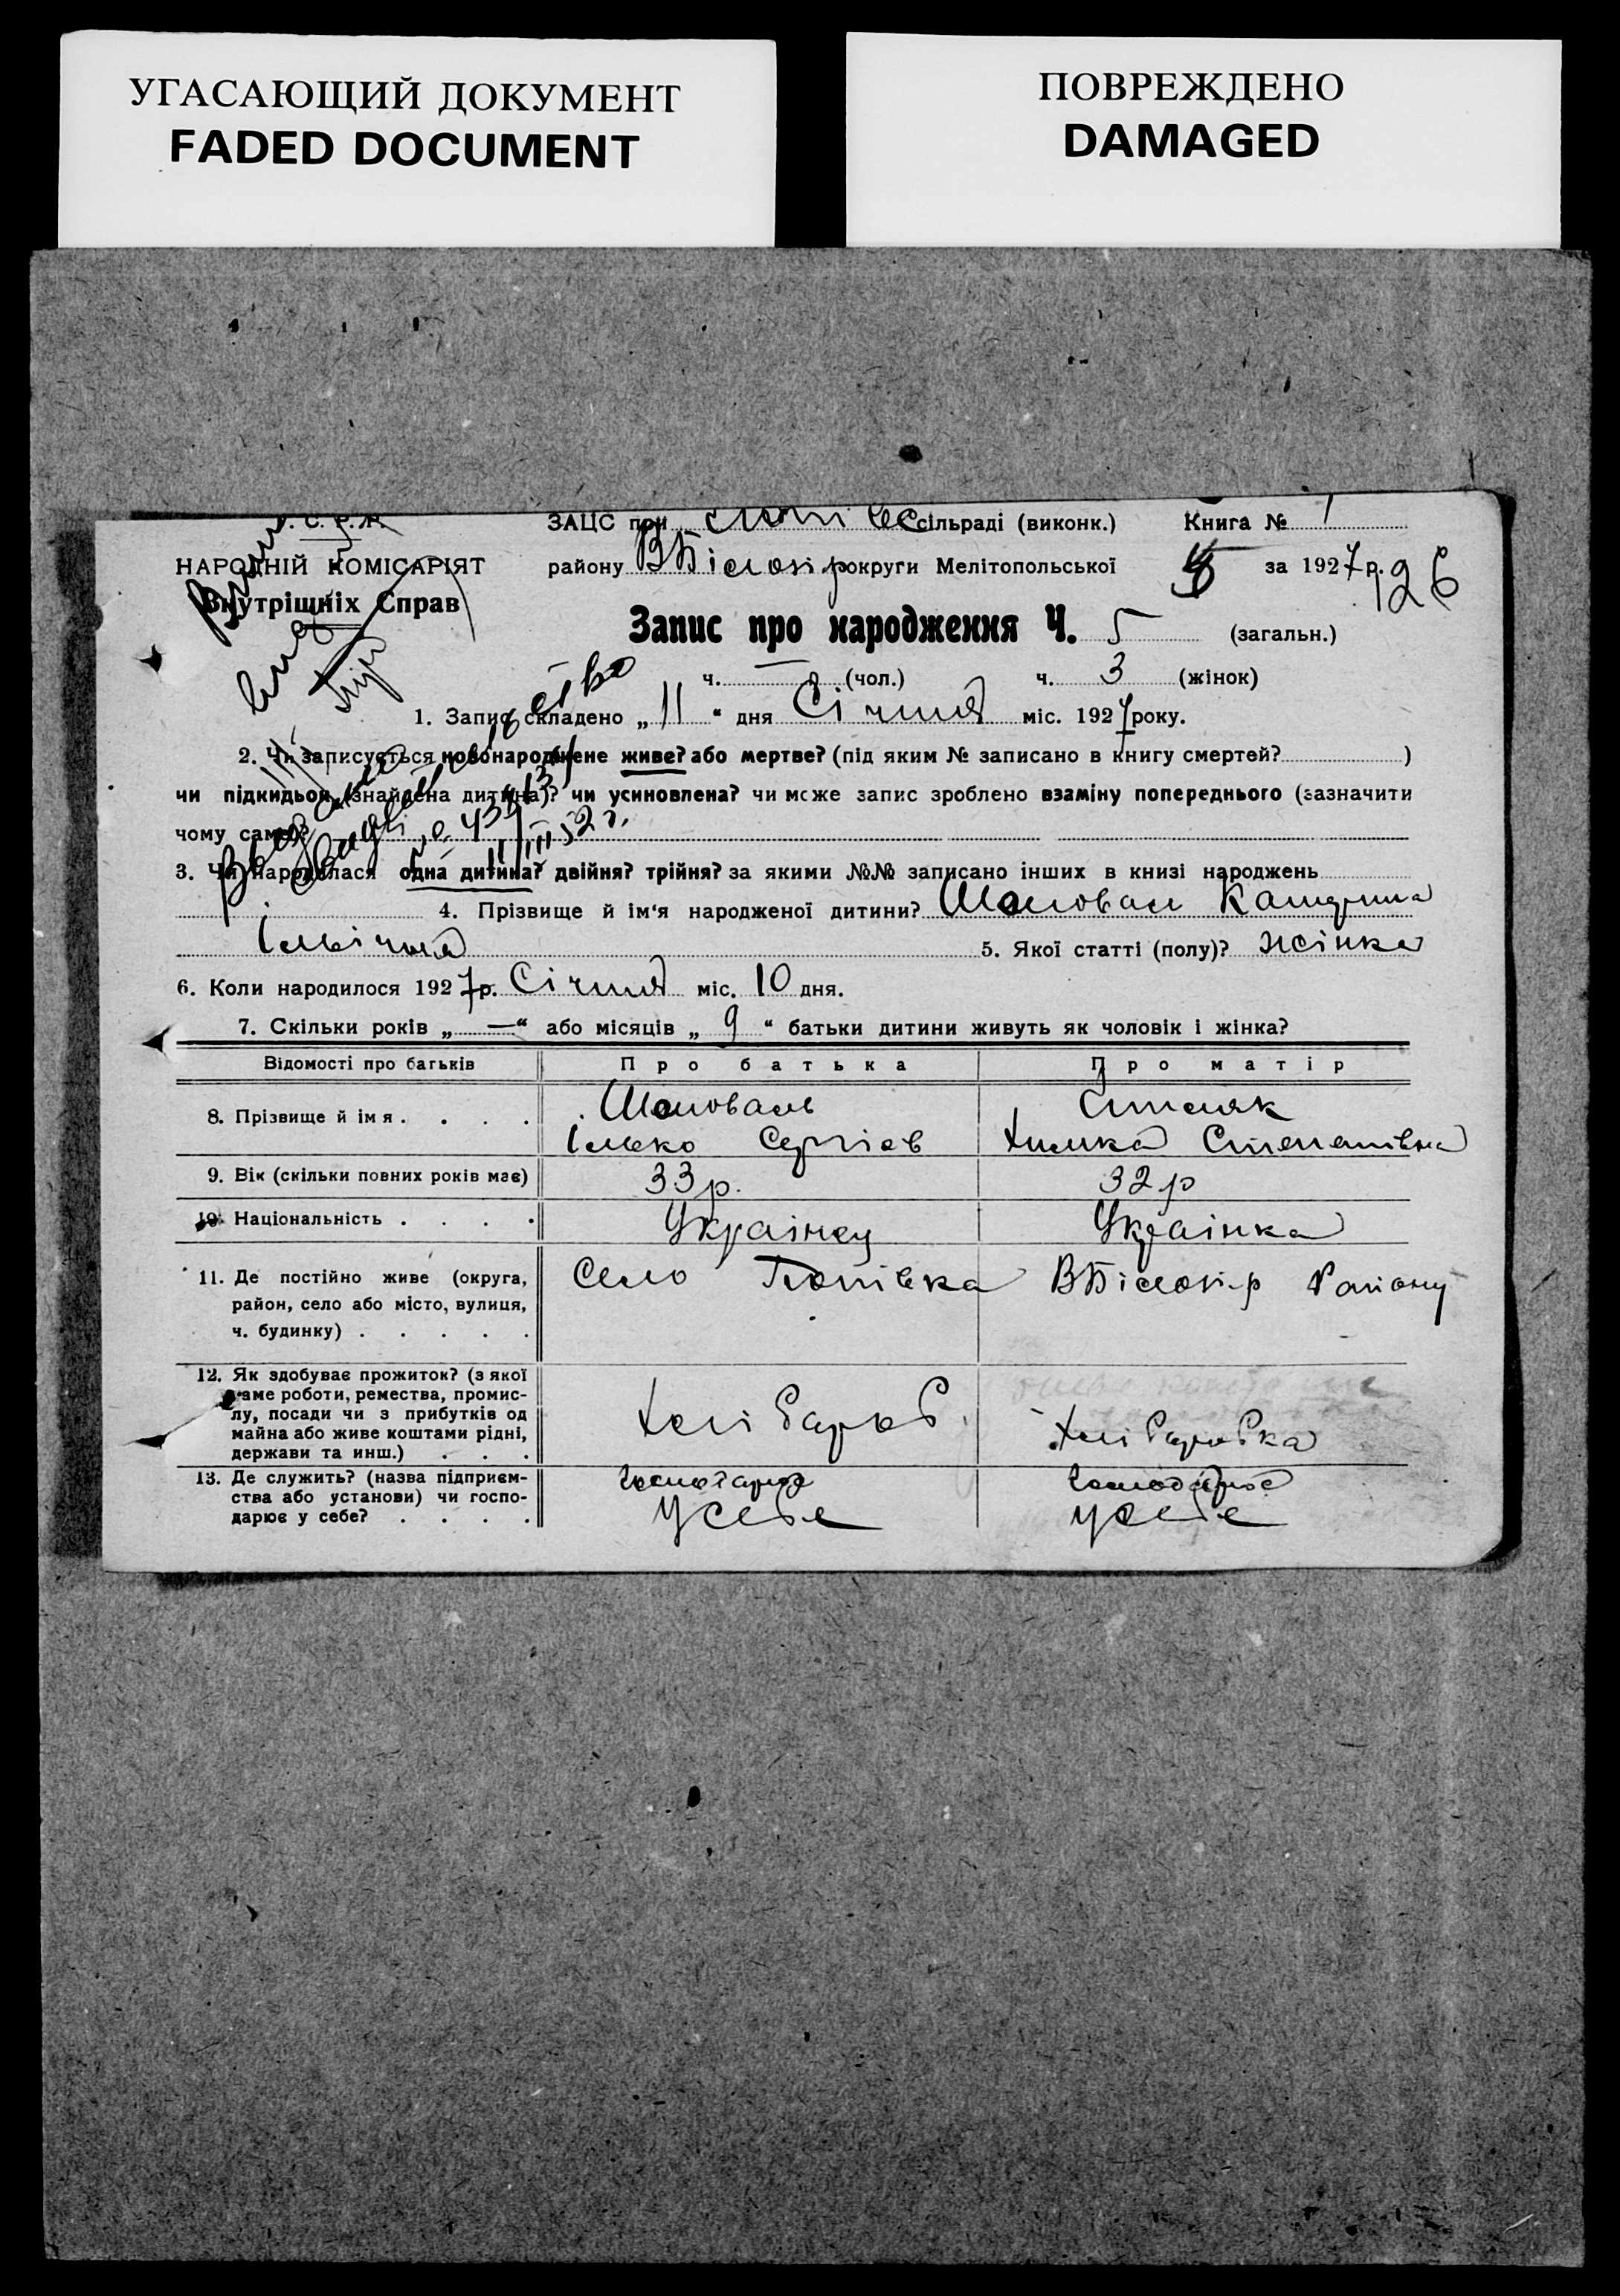 УГАСАЮЩИЙ ДОКУМЕНТ
FADED DOCUMENT
ПОВРЕЖДЕНО
DAMAGED
У. С. Р. Р.
НАРОДНІЙ КОМІСАРІЯТ
Внутрішніх Справ
ЗАЦС при сільраді (виконк.) Книга № 1
району ВБілозір округи Мелітопольської 5 за 1927 р. 126
Запис про народження Ч. 5 (загальн.)
ч. — (чол.) ч. 3 (жінок)
1. Запис складено „11“ дня Січня міс. 1927 року.
2. Чи записується новонароджене живе? або мертве? (під яким № записано в книгу смертей? )
чи підкидьок (знайдена дитина)? чи усиновлена? чи може запис зроблено взаміну попереднього (зазначити
чому саме)?
3. Чи народилася одна дитина? двійня? трійня? за якими №№ записано інших в книзі народжень
4. Прізвище й ім‘я народженої дитини? Шаповал Катерина
Ільківна 5. Якої статті (полу)? жінка
6. Коли народилося 1927 р. Січня міс. 10 дня.
7. Скільки років „—“ або місяців „9“ батьки дитини живуть як чоловік і жінка?
Відомості про батьків Про батька Про матір
8. Прізвище й імя . . . . Шаповаль
Ілько Сергієв Химка Степанівна
9. Вік (скільки повних років має) 33 р. 32 р
10. Національність . . . . Українец Українка
11. Де постійно живе (округа,
район, село або місто, вулиця,
ч. будинку) . . . . .
Село Попівка ВБілозір Району
12. Як здобуває прожиток? (з якої
саме роботи, ремества, промис-
лу, посади чи з прибутків од
майна або живе коштами рідні,
держави та инш.) . . .
Хлібароб. Хлібаробка
13. Де служить? (назва підприєм-
ства або установи) чи госпо-
дарює у себе? . . . .
Господарює Господарює
У себе У себе